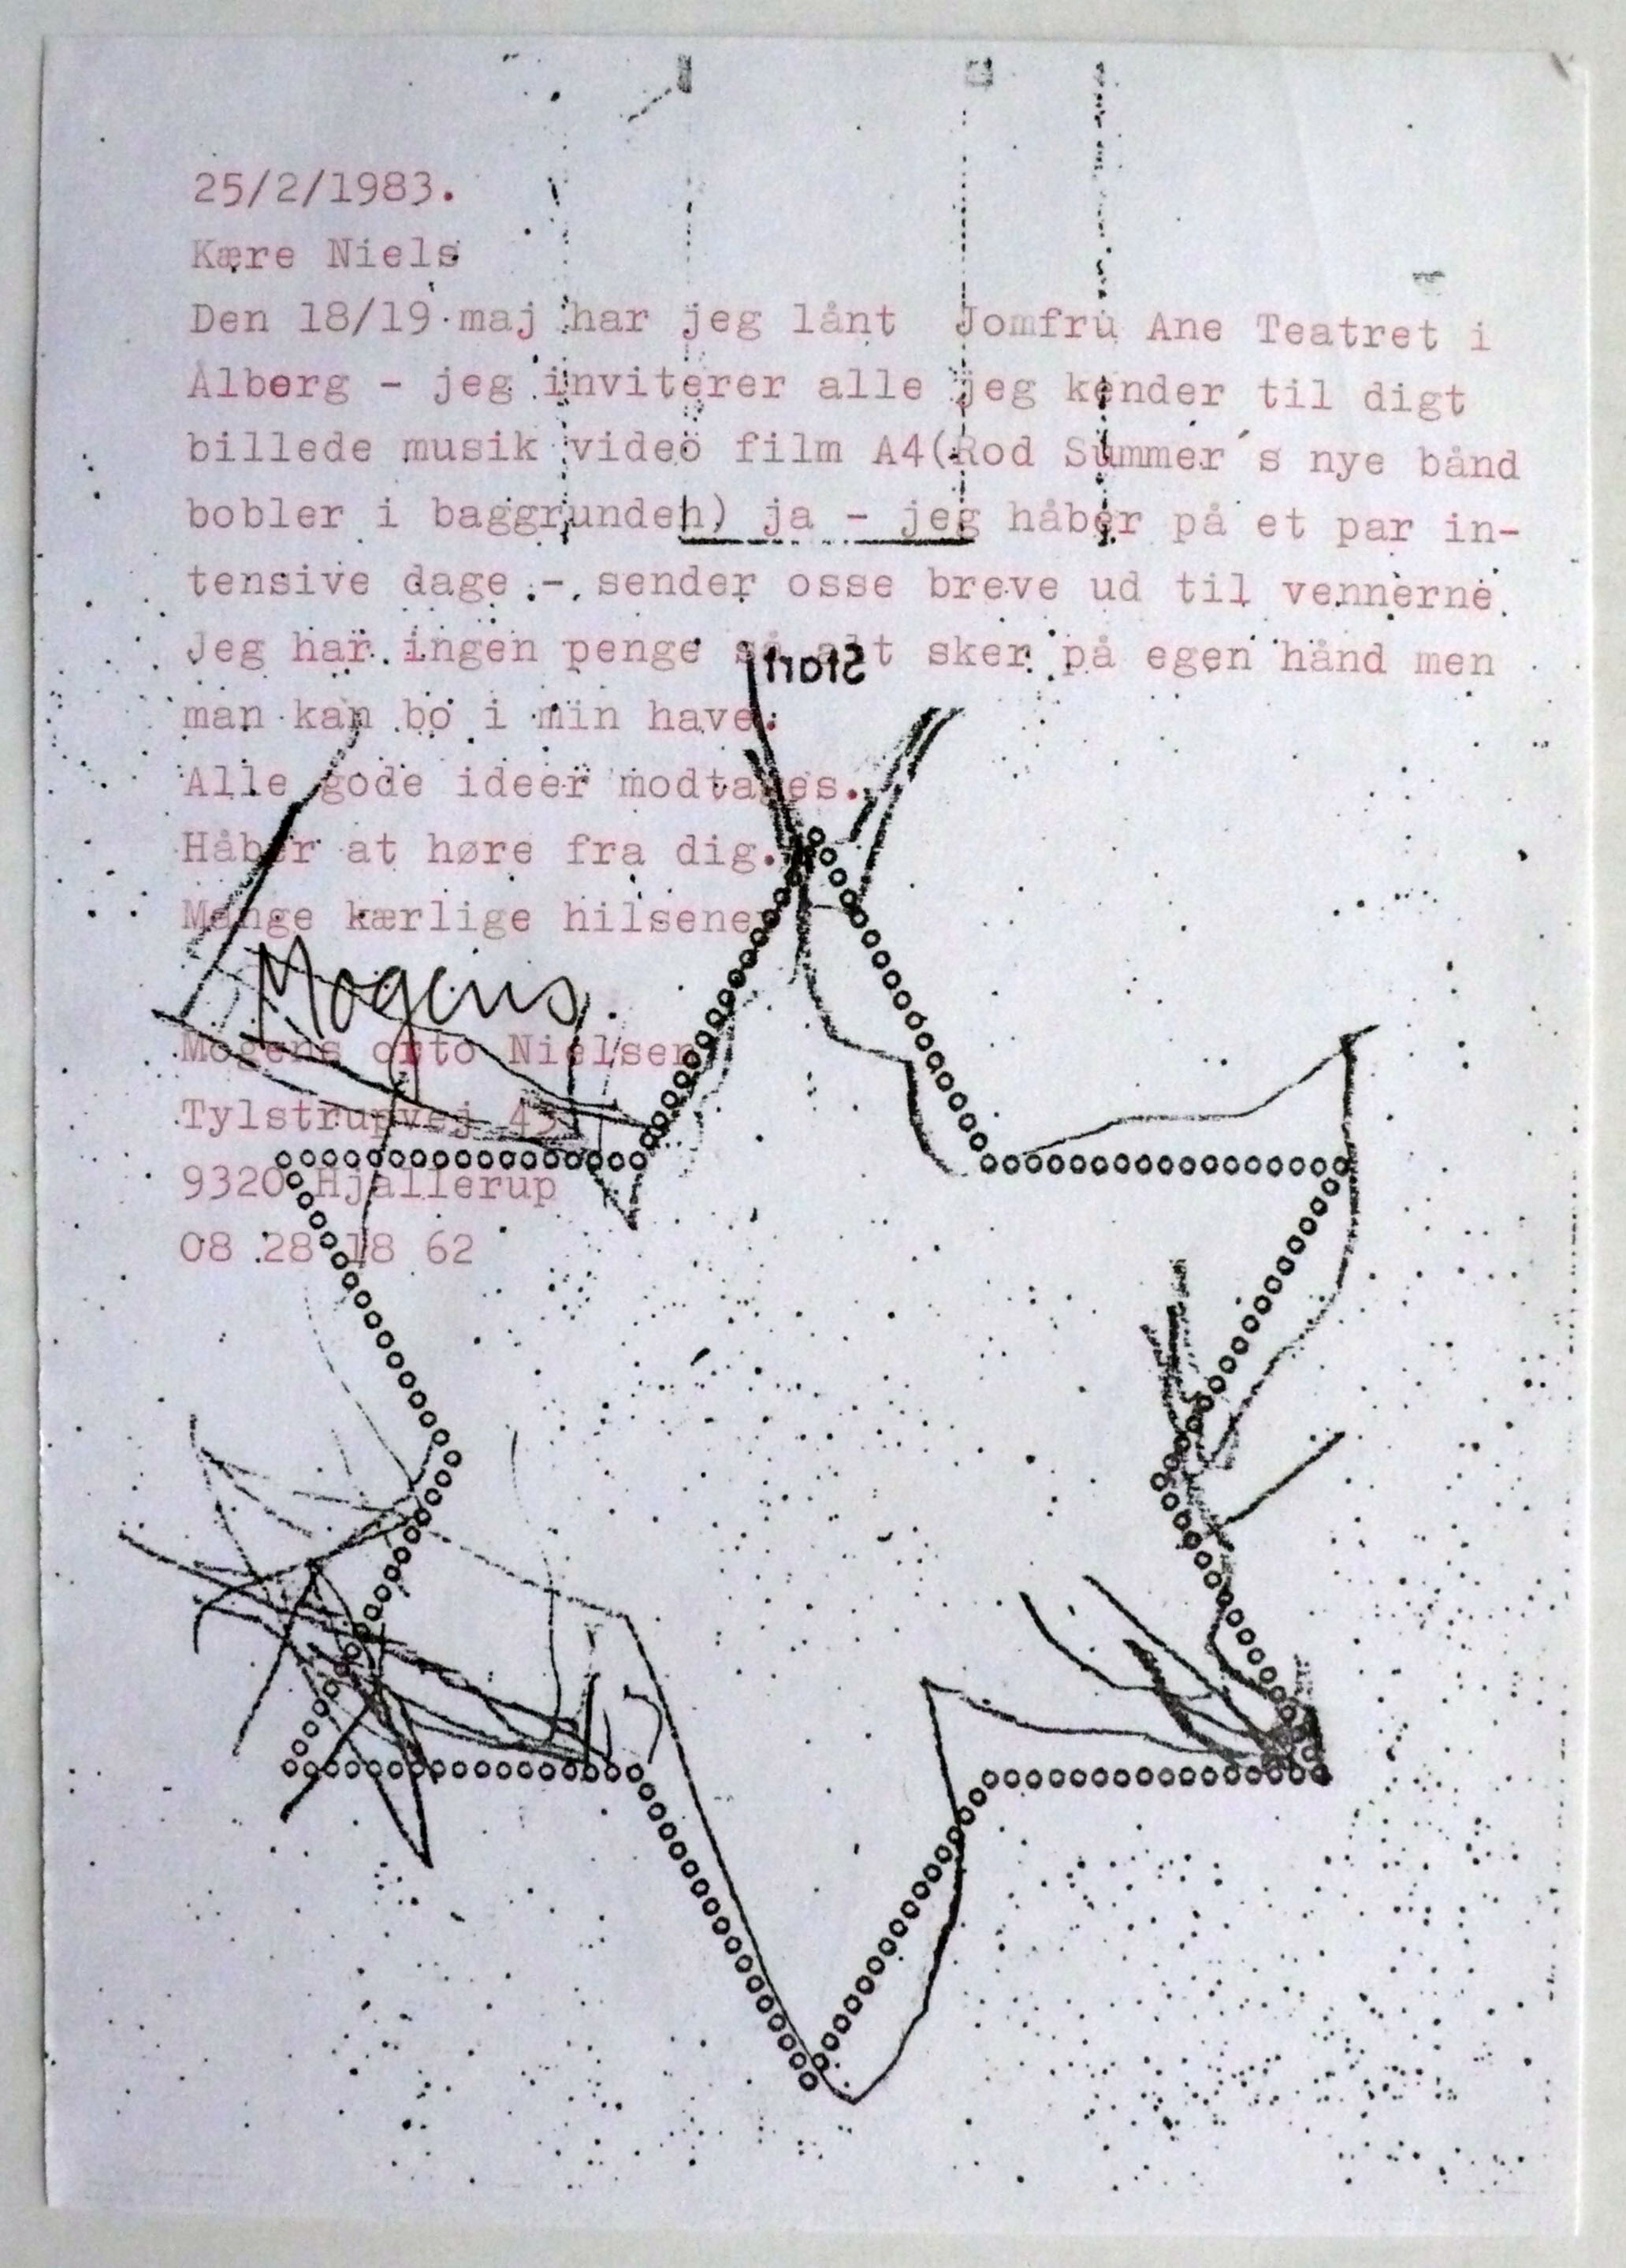 25/2/1983.
Kære Niels
Den 18/19 maj har jeg lånt Jomfru Ane Teatret i
Ålborg - jeg inviterer alle jeg kender til digt
billede musik video film A4(Rod Summer´s nye bånd
bobler i baggrunden) ja - jeg håber på et par in-
tensive dage - sender osse breve ud til vennerne.
Jeg har ingen penge så alt sker på egen hånd men
man kan bo i min have.
Start
Alle gode ideer modtages.
Håber at høre fra dig.
Mange kærlige hilsener
Mogens
Mogens otto Nielsen
Tylstrupvej 43
9320 Hjallerup
08 28 18 62